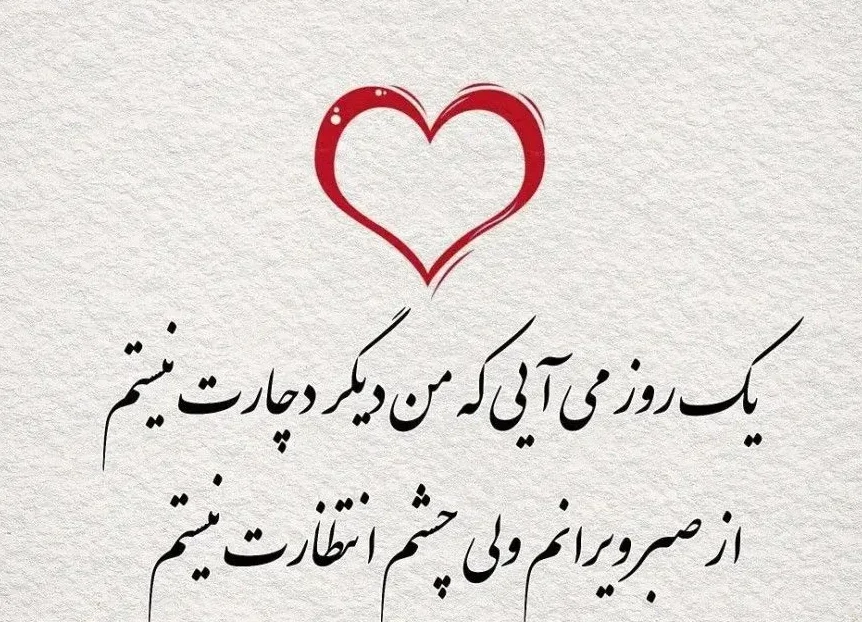 یک روز می آیی که من دیگر دچارت نیستم
از صبر ویرانم ولی چشم انتظارت نیستم